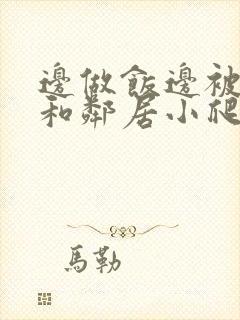 邊做飯邊被
和鄰居小爬
馬勒